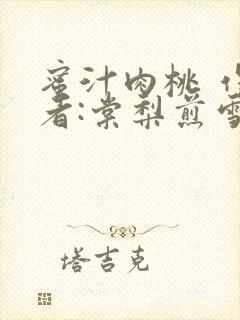 蜜汁肉桃
者:棠梨煎雪
塔吉克